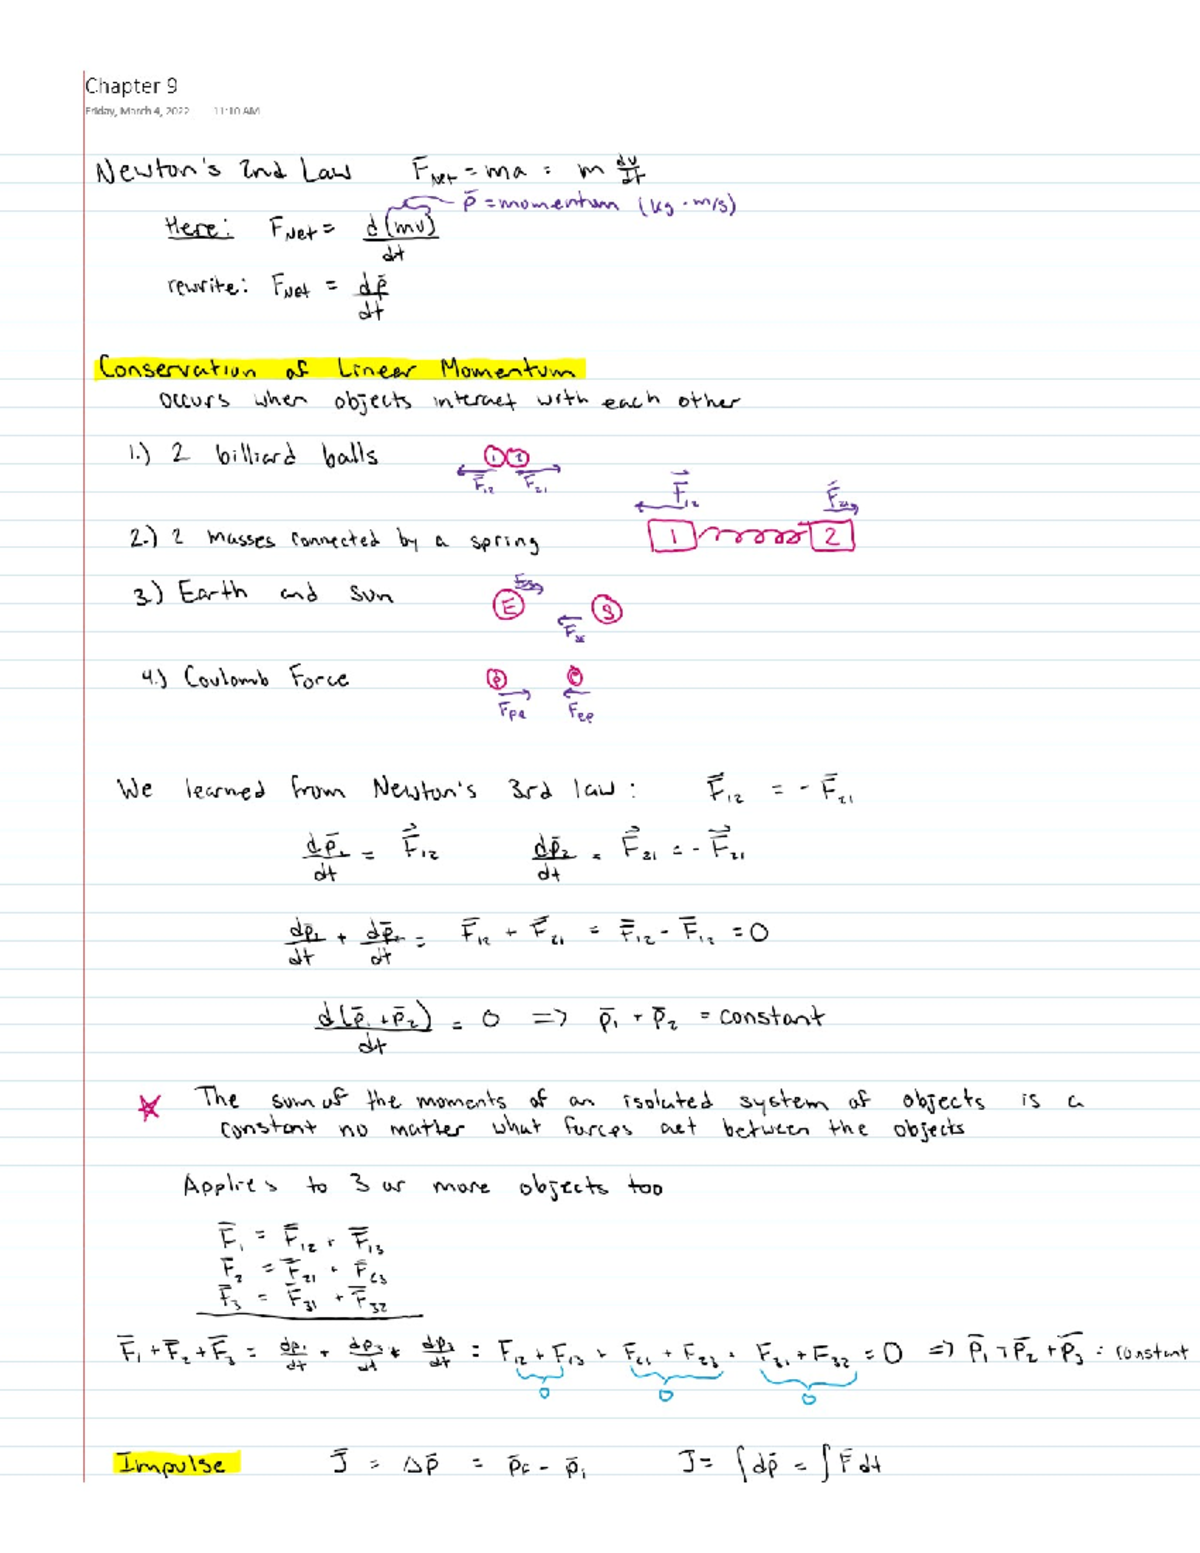 Chapter 9
Friday, March 4, 2022 11:10 AM
Newton's 2nd Law F_Net = ma = m dv/dt
p̄ = momentum (kg·m/s)
Here: F_Net = d(mv)/dt
rewrite: F_Net = dp̄/dt
Conservation of Linear Momentum
occurs when objects interact with each other
1.) 2 billiard balls 1 2
F̄₁₂ F̄₂₁
F⃗₁₂ F⃗₂₁
2.) 2 masses connected by a spring 1 2
3.) Earth and sun E S
4.) Coulomb Force P e
F_pe F_ep
We learned from Newton's 3rd law: F⃗₁₂ = - F̄₂₁
dp̄₁/dt = F⃗₁₂ dp̄₂/dt = F⃗₂₁ = - F⃗₂₁
dp̄₁/dt + dp̄₂/dt = F̄₁₂ + F̄₂₁ = F̄₁₂ - F̄₁₂ = 0
d(p̄₁ + p̄₂)/dt = 0 => p̄₁ + p̄₂ = constant
The sum of the moments of an isolated system of objects is a
constant no matter what forces act between the objects
Applies to 3 or more objects too
F̄₁ = F̄₁₂ + F̄₁₃
F̄₂ = F̄₂₁ + F̄₂₃
F̄₃ = F̄₃₁ + F̄₃₂
F̄₁ + F̄₂ + F̄₃ = dp₁/dt + dp₂/dt + dp₃/dt = F₁₂ + F₁₃ + F₂₁ + F₂₃ + F₃₁ + F₃₂ = 0 => p̄₁ + p̄₂ + p̄₃ = constant
0 0 0
Impulse J̄ = Δp̄ = p̄f - p̄i J = ∫dp̄ = ∫F̄dt